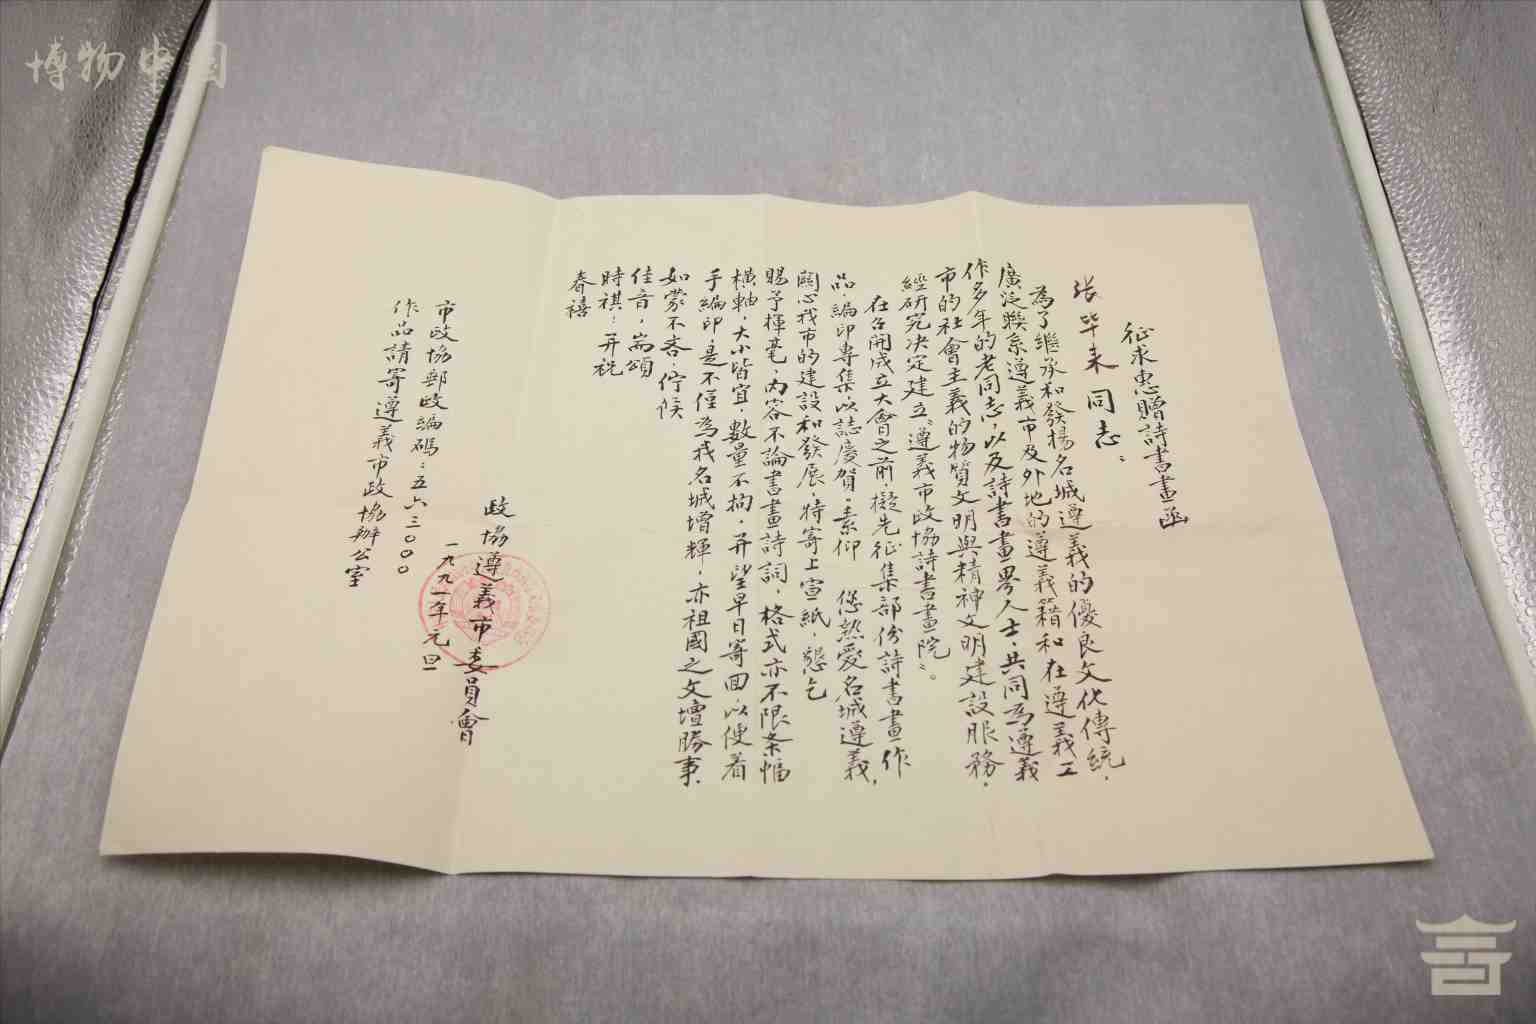 博物中国
征求惠贈詩書畫函
张毕来同志：
為了繼承和發揚名城遵義的優良文化傳統，
廣泛聯系遵義市及外地的遵義籍和在遵義工
作多年的老同志，以及詩書畫界人士，共同為遵義
市的社會主義的物質文明與精神文明建設服務，
經研究决定建立“遵義市政協詩書畫院”。
在召開成立大會之前擬先征集部份詩書畫作
品，編印專集，以誌慶賀。素仰 您熱愛名城遵義，
關心我市的建設和發展，特寄上宣紙，懇乞
賜予揮毫，内容不論書畫詩詞，格式亦不限条幅
橫軸，大小皆宜，數量不拘，并望早日寄回，以便着
手編印，是不僅為我名城增輝，亦祖國之文壇勝事，
如蒙不吝，佇候
佳音，耑頌
時祺：并祝
春禧
政協遵義市委員會
一九九一年元旦
市政協郵政編碼：五六三〇〇〇
作品請寄遵義市政協辦公室